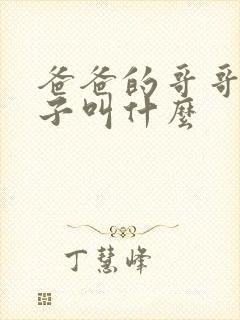 爸爸的哥哥
子叫什麼
丁慧峰